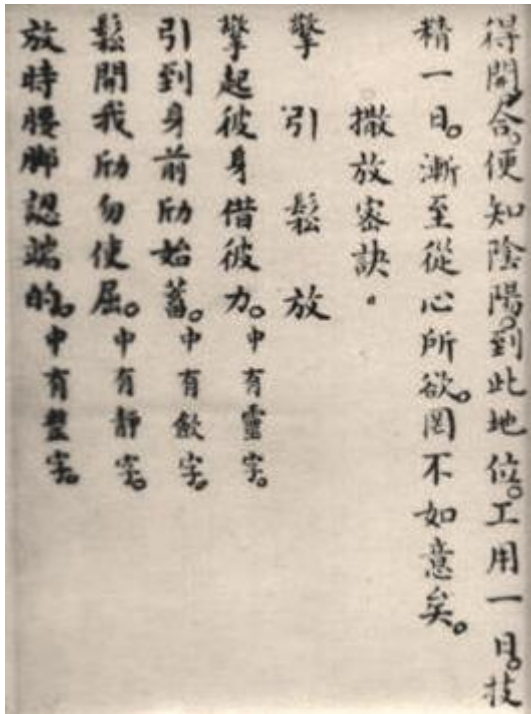 得開合。便知陰陽。到此地位。工用一日。技
精一日。漸至從心所欲。罔不如意矣。
撒放密訣。
擎引鬆放
擎起彼身借彼力。中有靈字。
引到身前劤始蓄。中有斂字。
鬆開我劤勿使屈。中有靜字。
放時腰脚認端的。中有整字。